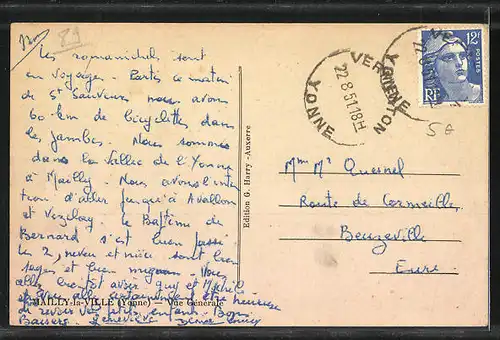 89
Les romanichels sont
en voyages. Partes ce matin
de St Sauveur nous avons
60 km de bicyclettes dans
les jambes. Nous sommes
dans la Vallée de l'Yonne
à Mailly. Nous avons l'inten
tion d'aller jusqu'à Avallon
et Vezelay. Le Baptême de
Bernard s'est bien passé
les 2, neveu et nièce sont bien
sages et bien mignons. Vous
allez bientôt avoir Guy et
certainement être heureuse
de revoir vos petits enfants. Bons
Baisers. Geneviève
MAILLY-la-VILLE (Yonne) — Vue Générale
Edition G. Harry - Auxerre
VERMENTON
22·8·51.18H
YONNE
12F
POSTES
RF
5e
Mme Quesnel
Route de Cormeilles
Beuzeville
Eure